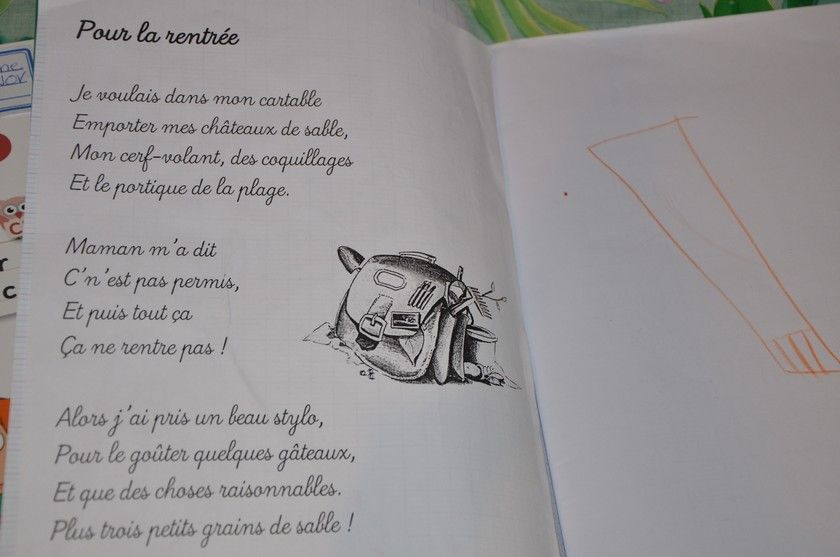 Pour la rentrée
Je voulais dans mon cartable
Emporter mes châteaux de sable,
Mon cerf-volant, des coquillages
Et le portique de la plage.
Maman m'a dit
C'n'est pas permis,
Et puis tout ça
Ça ne rentre pas !
Alors j'ai pris un beau stylo,
Pour le goûter quelques gâteaux,
Et que des choses raisonnables.
Plus trois petits grains de sable !